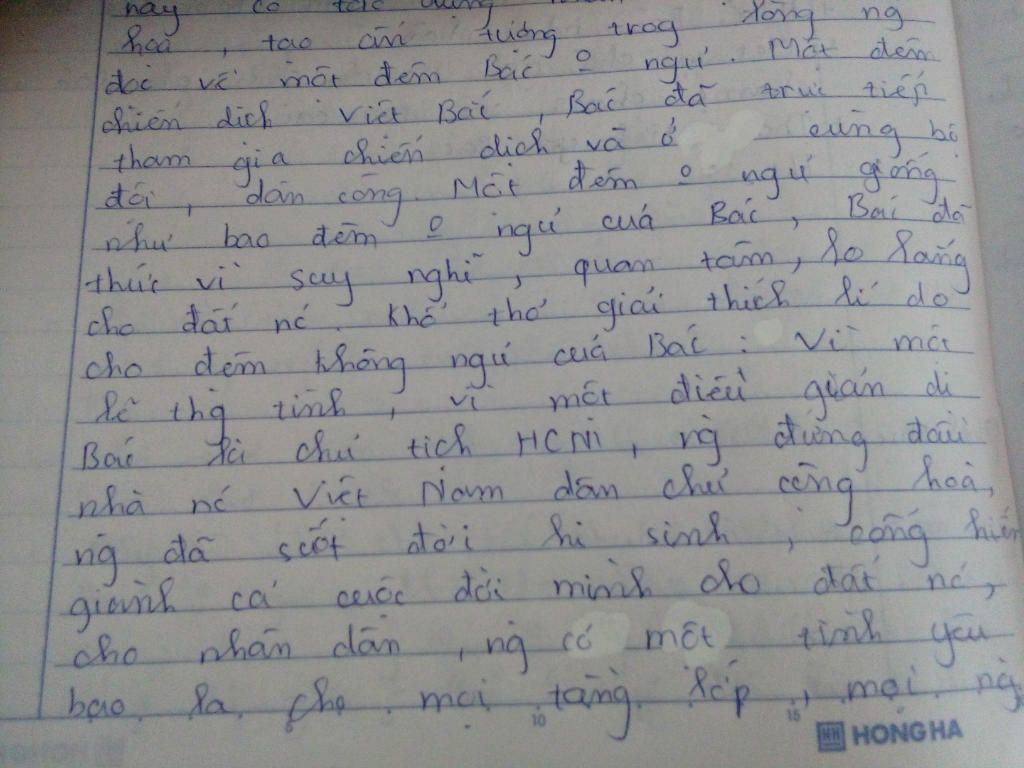 này có tác dụng
hoà, tạo ấn tượng trog lòng ng
đọc về một đêm Bác o ngủ. Một đêm
chiến dịch Việt Bắc, Bác đã trực tiếp
tham gia chiến dịch và ở cùng bộ
đội, dân công. Một đêm o ngủ giống
như bao đêm o ngủ của Bác, Bác đã
thức vì suy nghĩ, quan tâm, lo lắng
cho đất nc. Khổ thơ giải thích lí do
cho đêm không ngủ của Bác: Vì một
lẽ thg tình, vì một điều giản dị
Bác là chủ tịch HCM, ng đứng đầu
nhà nc Việt Nam dân chủ cộng hoà,
ng đã suốt đời hi sinh, cống hiến
giành cả cuộc đời mình cho đất nc,
cho nhân dân, ng có một tình yêu
bao la cho mọi tầng lớp, mọi ng
10 15
HONG HA